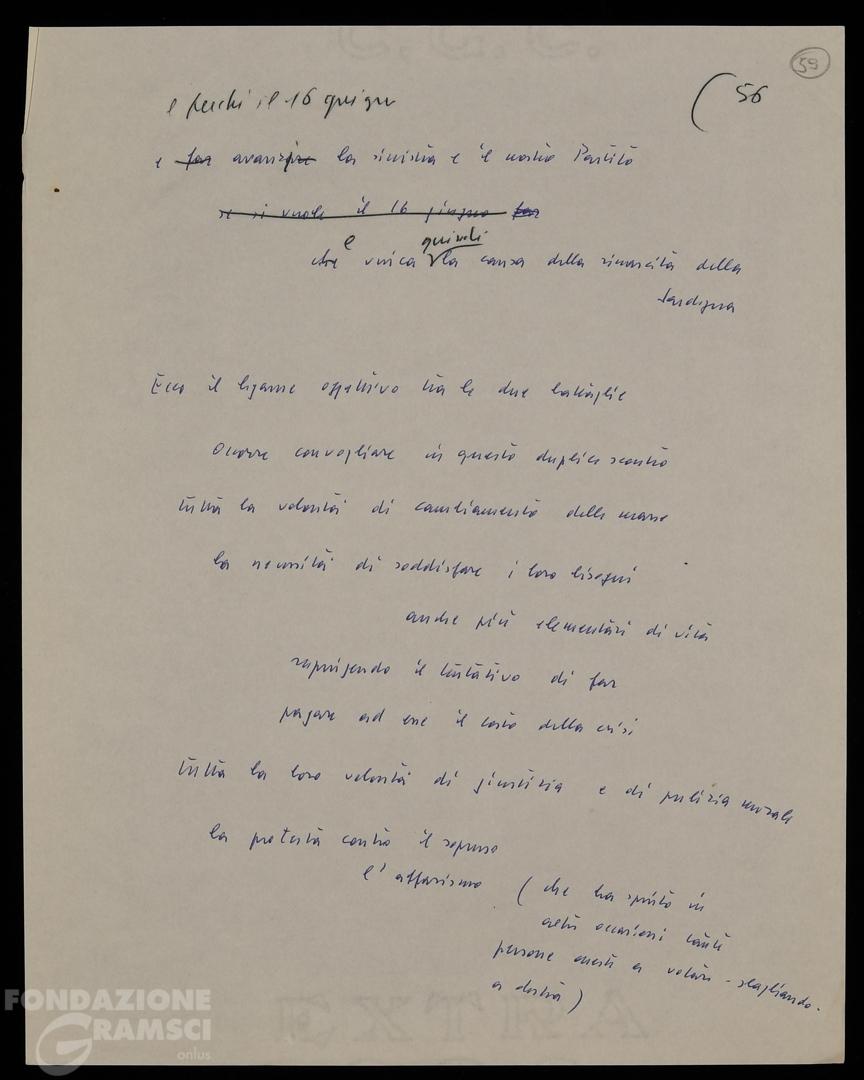 59
( 56
e perché il 16 giugno
e far avanzare la sinistra e il nostro Partito
se si vuole il 16 giugno far
e quindi
che vinca la causa della rinascita della
Sardegna
Ecco il legame oggettivo tra le due battaglie
Occorre convogliare in questo duplice scontro
tutta la volontà di cambiamento delle masse
la necessità di soddisfare i loro bisogni
anche più elementari di vita
respingendo il tentativo di far
pagare ad esse il costo della crisi
tutta la loro volontà di giustizia e di pulizia morale
la protesta contro il sopruso
l'affarismo (che ha spinto in
altre occasioni tante
persone oneste a votare - sbagliando -
a destra)
FONDAZIONE
GRAMSCI
onlus
EXTRA